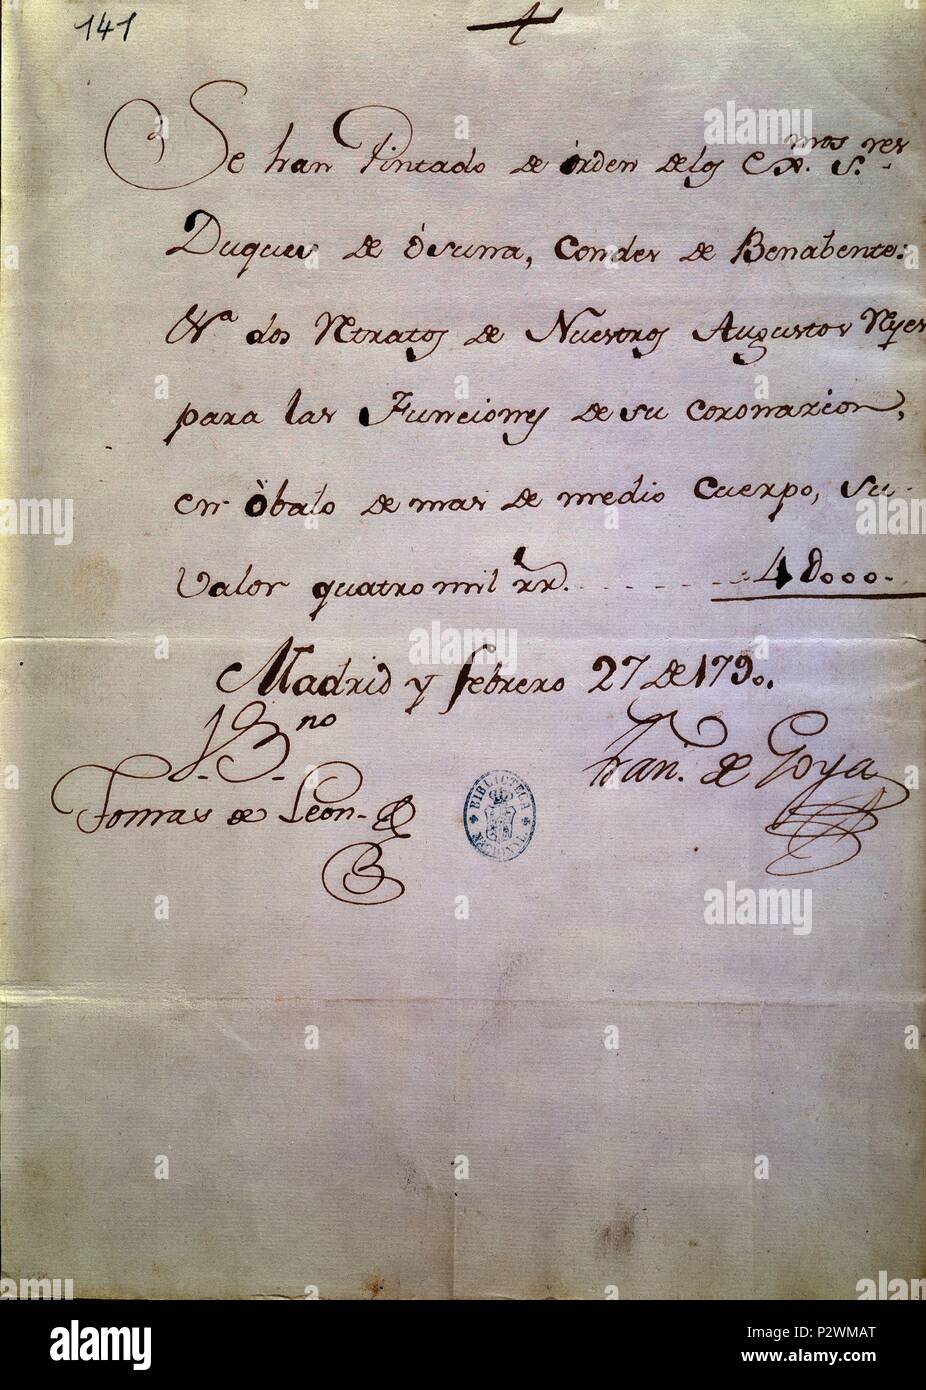 141
Se han Pintado de órden delos Exmos. Sres.
Duques de Ósuna, Condes de Benabente.
&a dos Rtratos de Nuestros Augustos Ryes
para las Funciones de su coronazion,
en Óbalo de mas de medio Cuerpo, su
Valor quatro mil rr. 4 D000.
Madrid y febrero 27 de 1790.
VB.no
Fran. de Goya
Tomas de Leon
BIBLIOTECA NACIONAL
alamy
Image ID: P2WMAT
www.alamy.com